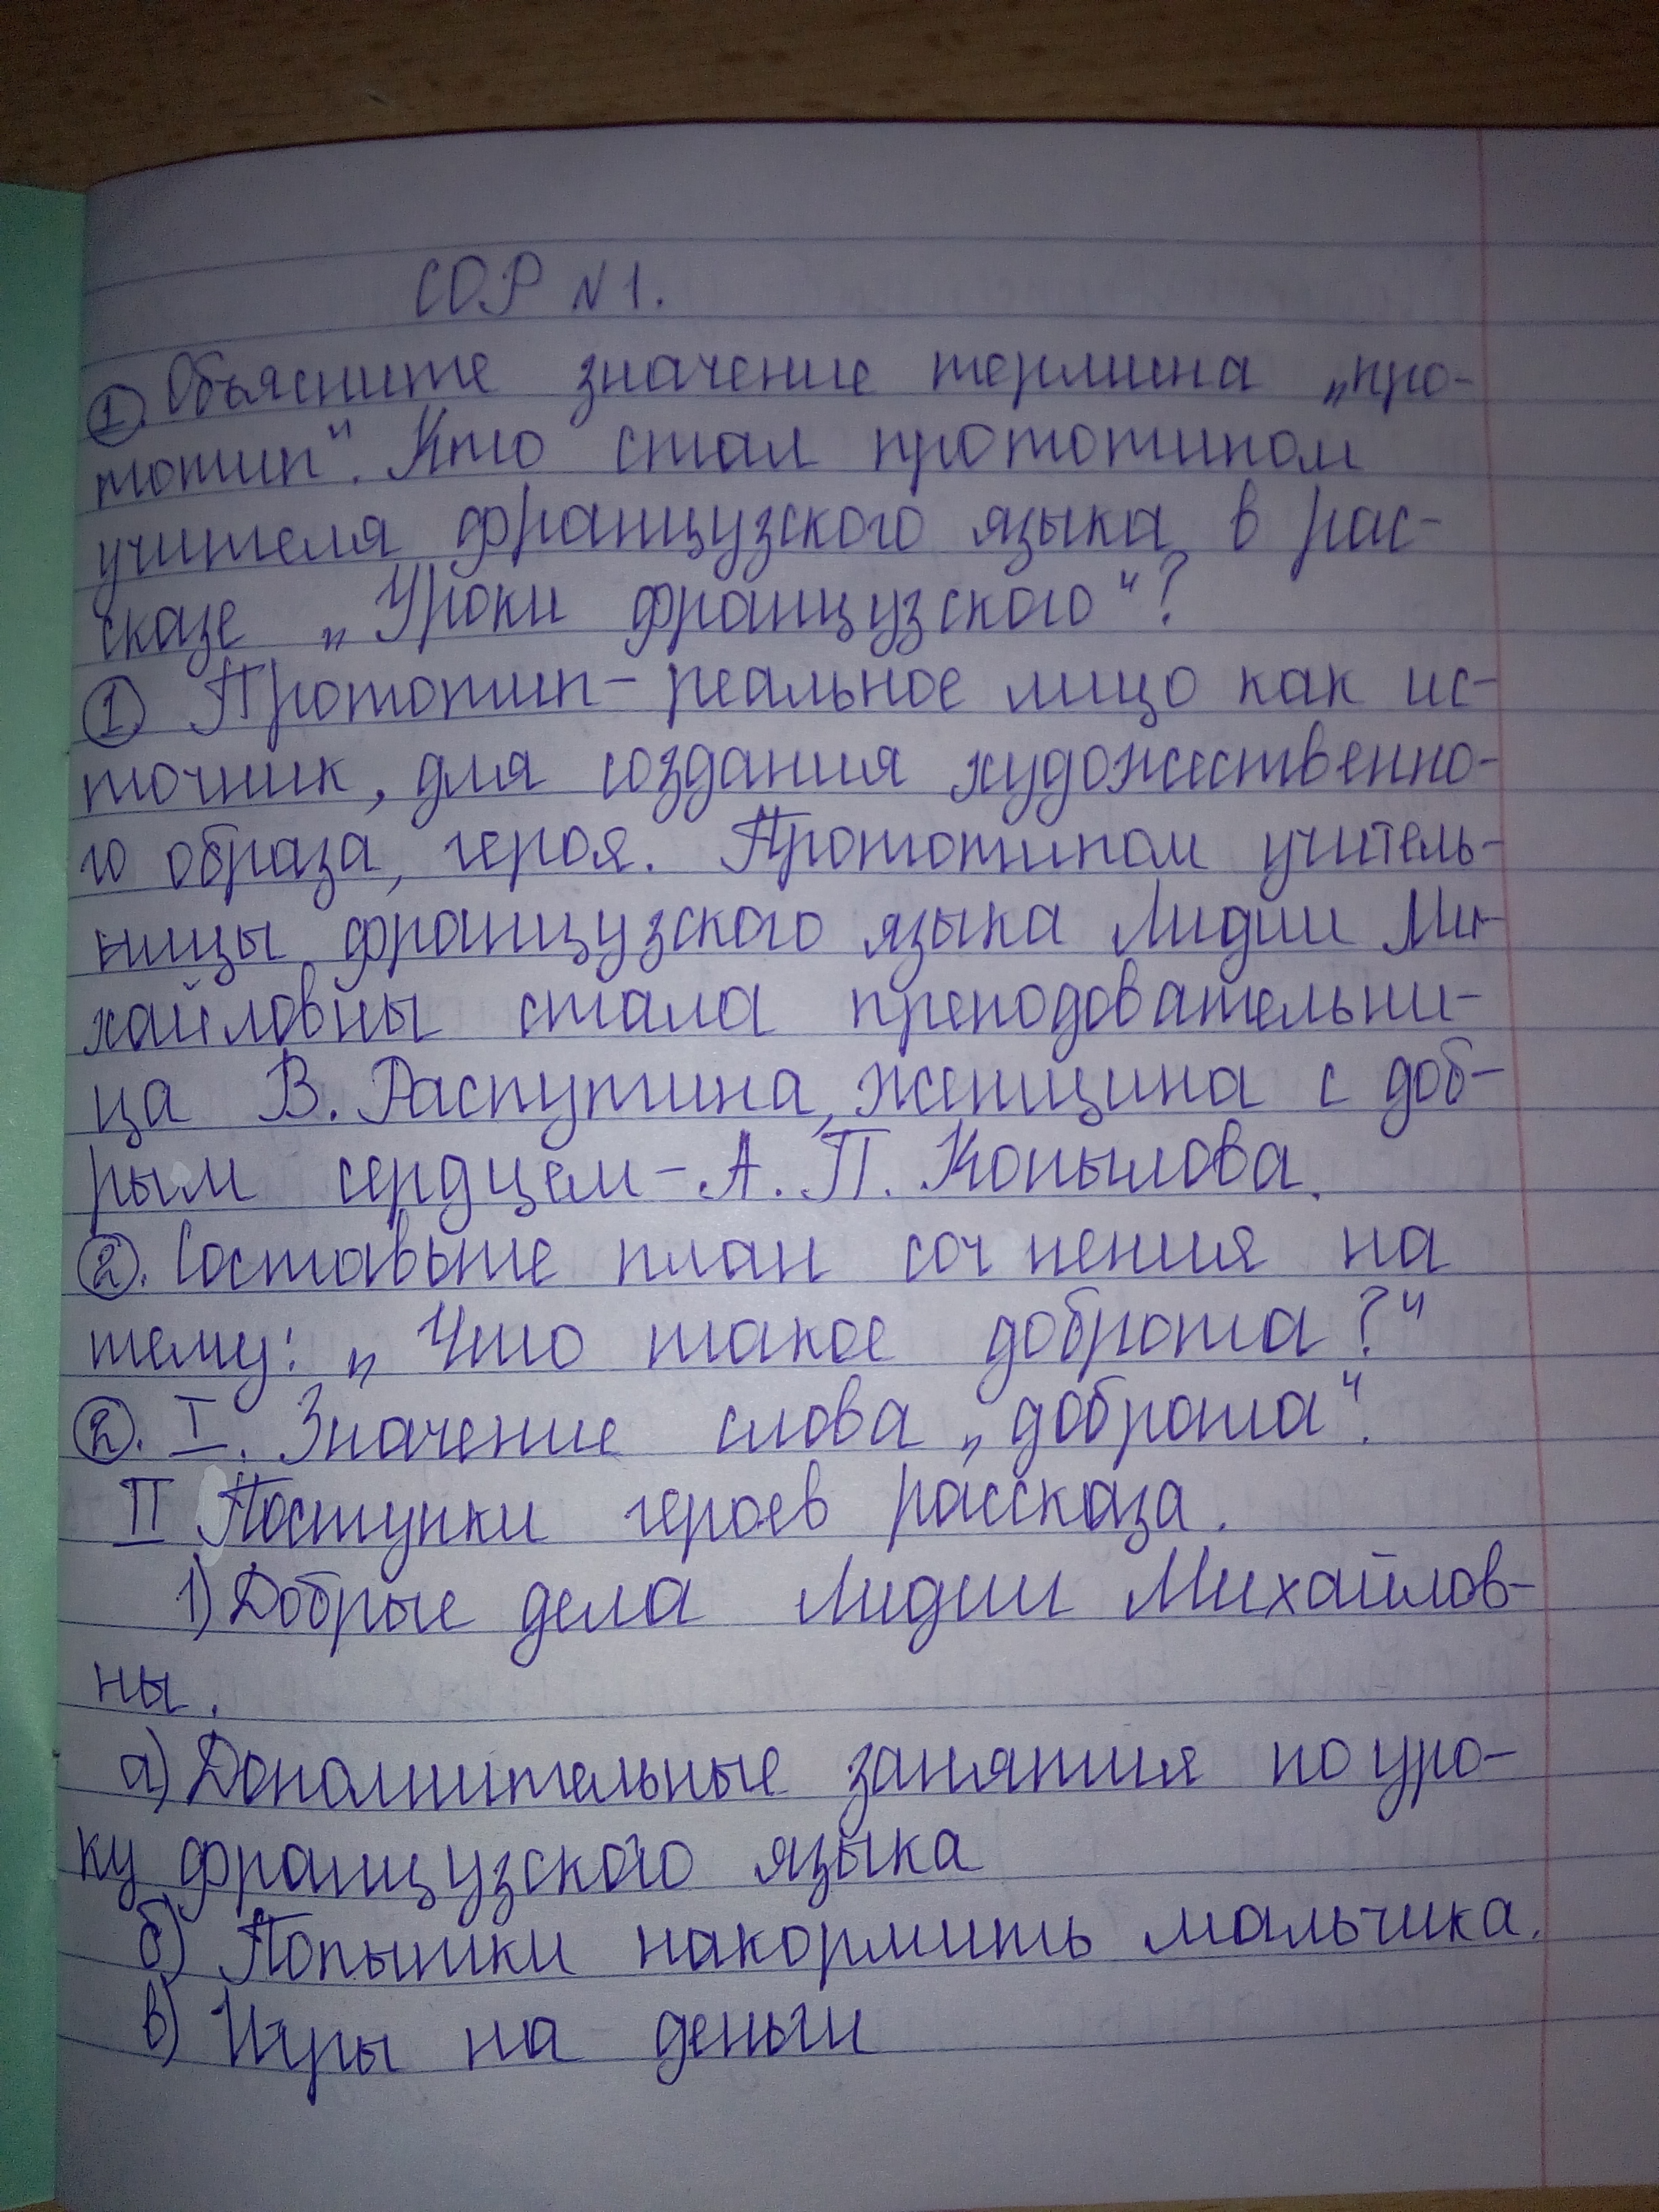 СОР №1.
1. Объясните значение термина „про-
тотип". Кто стал прототипом
учителя французского языка в рас-
сказе „Уроки французского"?
1. Прототип - реальное лицо как ис-
точник, для создания художественно-
го образа, героя. Прототипом учитель-
ницы французского языка Лидии Ми-
хайловны стала преподовательни-
ца В. Распутина, женщина с доб-
рым сердцем - А. П. Копылова.
2. Составьте план соч нения на
тему: „Что такое доброта?"
2. I. Значение слова „доброта".
II Поступки героев рассказа.
1) Добрые дела Лидии Михайлов-
ны.
а) Дополнительные занятия по уро-
ку французского языка
б) Попытки накормить мальчика.
в) Игры на деньги